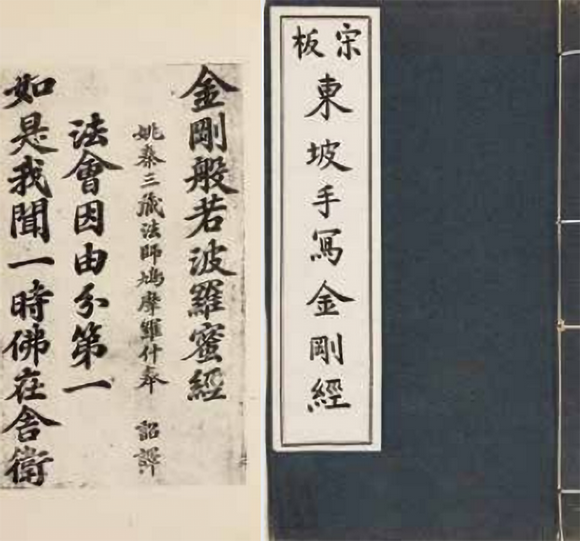 宋板
東坡手寫金剛經
金剛般若波羅蜜經
姚秦三藏法師鳩摩羅什奉 詔譯
法會因由分第一
如是我聞一時佛在舍衛